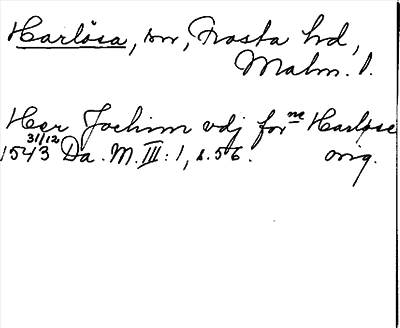 Harlösa, sn, Frosta hd,
Malm. l.
Her Jochim vdj for^ne Harløse
31/12
1543 Da. M. III: 1, s. 56. orig.